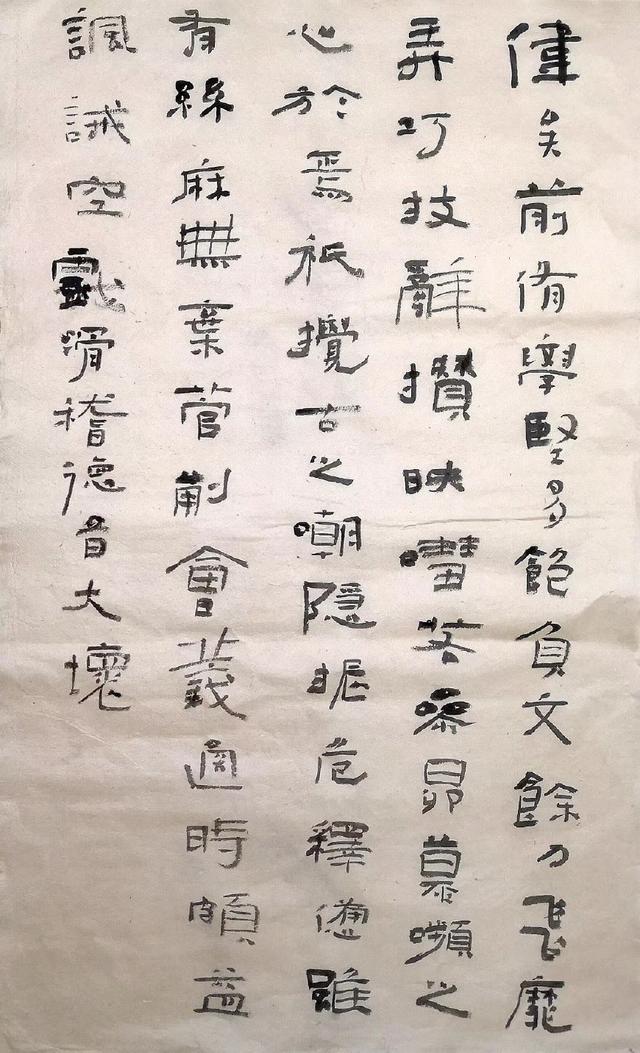 偉矣前脩學堅多飽負文餘力飛靡
弄巧技辭攢映嘒若參昴慕嚬之
心於焉祇攪古之嘲隱振危釋憊雖
有絲麻無棄菅蒯會義適時頗益
諷誡空戲滑稽德音大壞